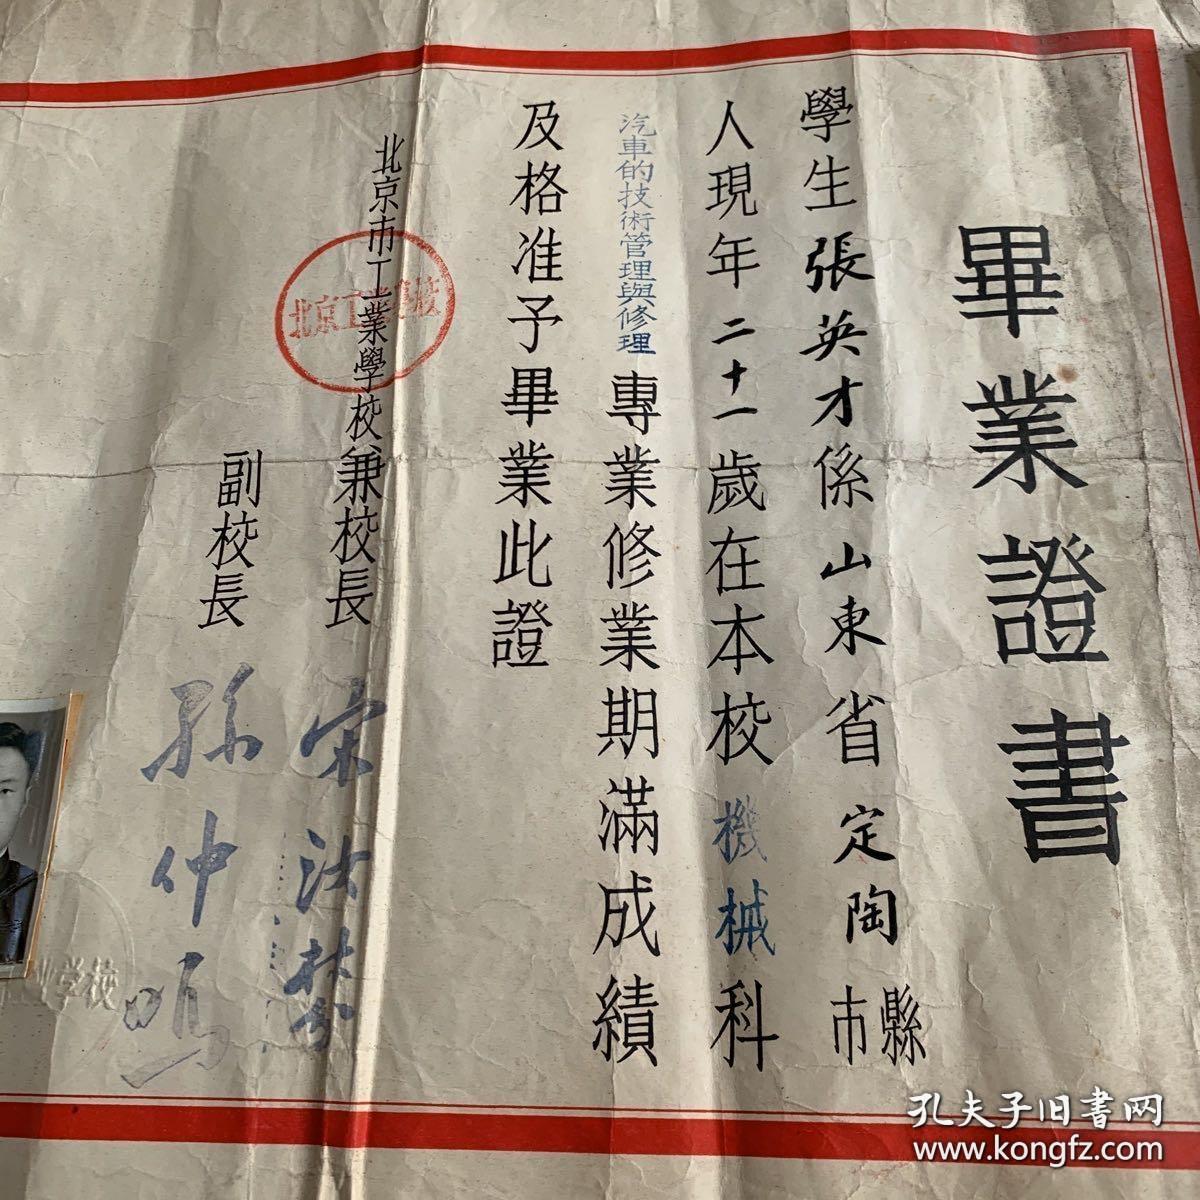 畢業證書
學生張英才係山東省定陶縣市
人現年二十一歲在本校機械科
汽車的技術管理與修理專業修業期滿成績
及格准予畢業此證
北京市工業學校兼校長
副校長
孫仲鳴
学校
孔夫子旧書网
www.kongfz.com